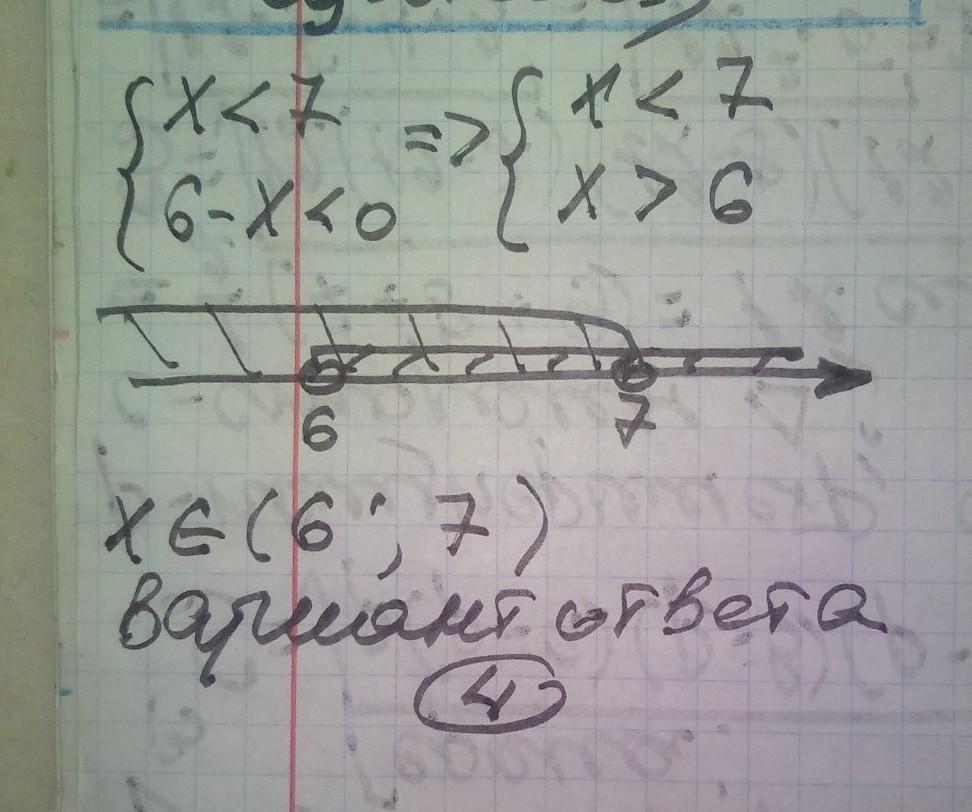 { x < 7 => { x < 7
{ 6 - x < 0 { x > 6
6 7
x ∈ (6 ; 7)
Вариант ответа
4